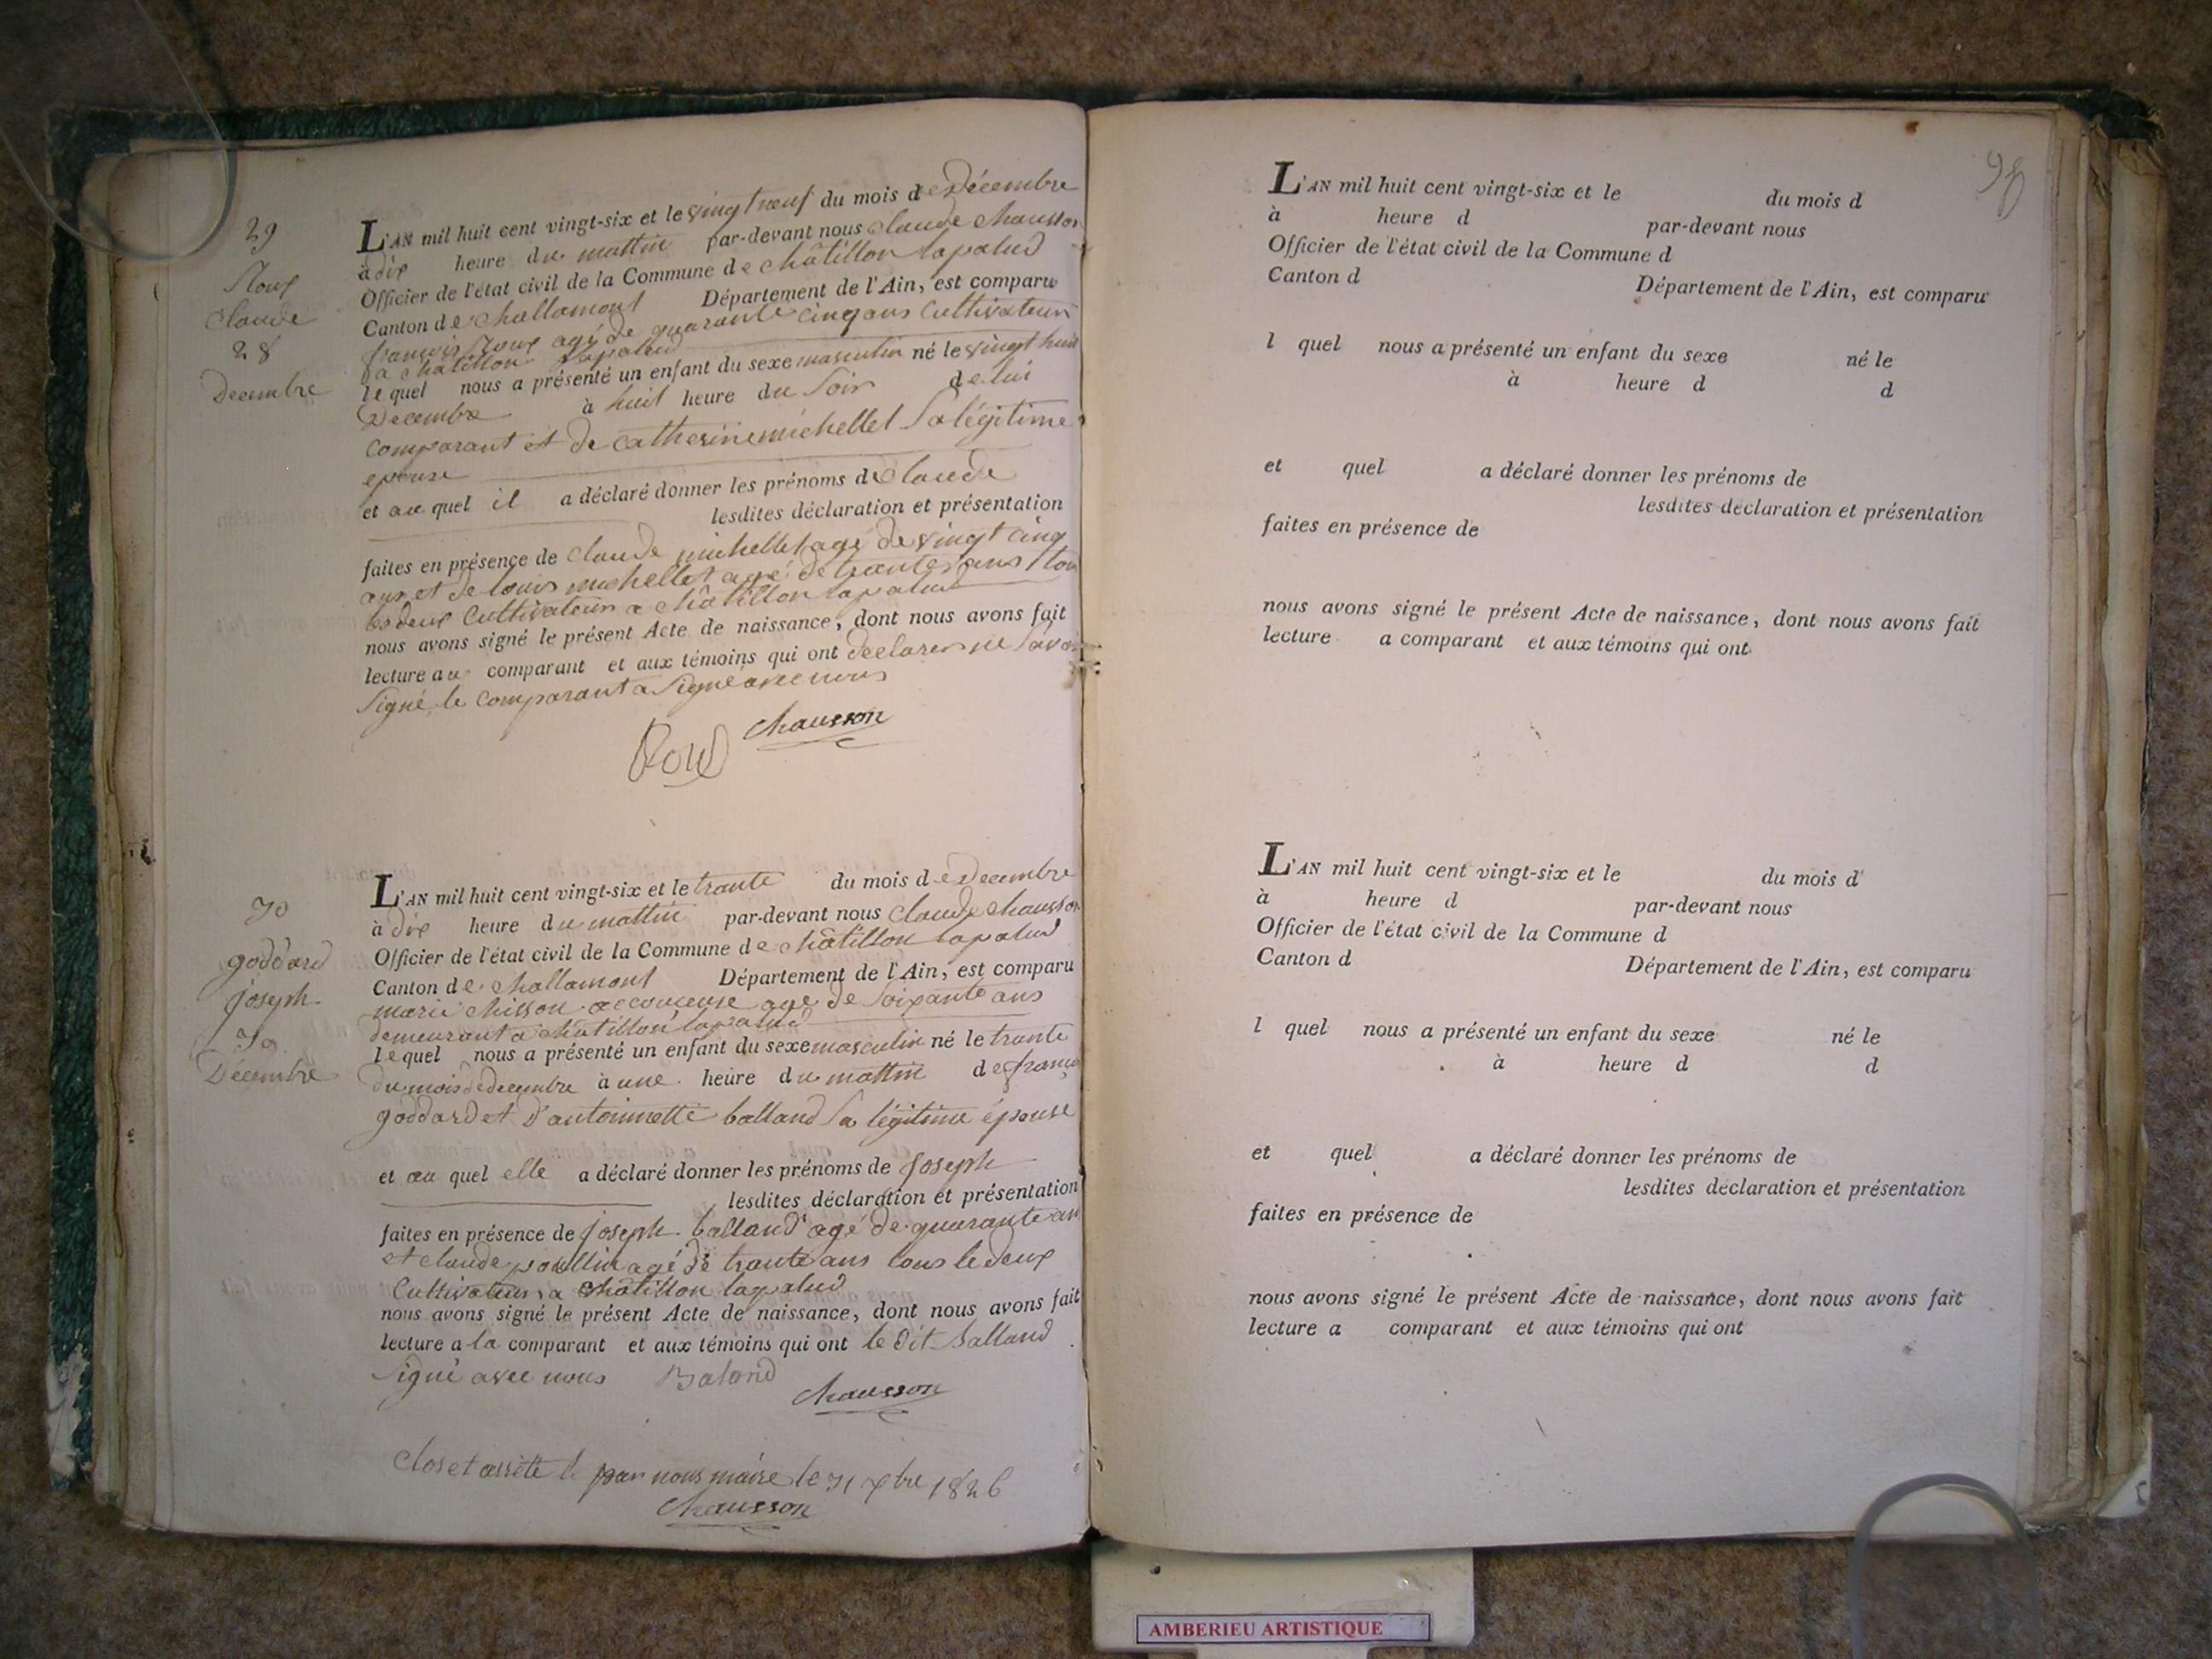 29
Roux
Claude
28
Decembre
L'AN mil huit cent vingt-six et le vingt neuf du mois de Décembre
à dix heure du mattin par-devant nous claude chausson
Officier de l'état civil de la Commune de châtillon lapalud
Canton de challamont Département de l'Ain, est comparu
françois Roux agé de quarante cinq ans Cultivateur
a chatillon lapalud
lequel nous a présenté un enfant du sexe masculin né le vingt huit
Decembre à huit heure du Soir de lui
comparant et de catherine michellet Sa légitime
epouse
et au quel il a déclaré donner les prénoms de Claude
lesdites déclaration et présentation
faites en présence de claude michellet agé de vingt cinq
ans et de louis michellet agé de trante ans tous
les deux Cultivateurs a châtillon lapalud
nous avons signé le présent Acte de naissance, dont nous avons fait
lecture au comparant et aux témoins qui ont declarer ne savoir
Signé, le comparant a Signé avec nous
Roux chausson
30
goddard
joseph
30
Decembre
L'AN mil huit cent vingt-six et le trante du mois de Decembre
à dix heure du mattin par-devant nous claude chausson
Officier de l'état civil de la Commune de châtillon lapalud
Canton de challamont Département de l'Ain, est comparu
marie chisson accouceuse agé de Soixante ans
demeurant a châtillon lapalud
lequel nous a présenté un enfant du sexe masculin né le trante
du mois de decembre à une heure du mattin de françois
goddard et d'antoinnette balland Sa légitime épouse
et au quel elle a déclaré donner les prénoms de Joseph
lesdites déclaration et présentation
faites en présence de joseph balland agé de quarante ans
et claude poullin agé de trante ans tous le deux
Cultivateurs a châtillon lapalud
nous avons signé le présent Acte de naissance, dont nous avons fait
lecture a la comparant et aux témoins qui ont le dit balland
Signé avec nous Baland
chausson
Clos et arrété le par nous maire le 31 xbre 1826
chausson
L'AN mil huit cent vingt-six et le du mois d
à heure d par-devant nous
Officier de l'état civil de la Commune d
Canton d Département de l'Ain, est comparu
l quel nous a présenté un enfant du sexe né le
à heure d d
et quel a déclaré donner les prénoms de
lesdites déclaration et présentation
faites en présence de
nous avons signé le présent Acte de naissance, dont nous avons fait
lecture a comparant et aux témoins qui ont
L'AN mil huit cent vingt-six et le du mois d
à heure d par-devant nous
Officier de l'état civil de la Commune d
Canton d Département de l'Ain, est comparu
l quel nous a présenté un enfant du sexe né le
à heure d d
et quel a déclaré donner les prénoms de
lesdites déclaration et présentation
faites en présence de
nous avons signé le présent Acte de naissance, dont nous avons fait
lecture a comparant et aux témoins qui ont
AMBERIEU ARTISTIQUE